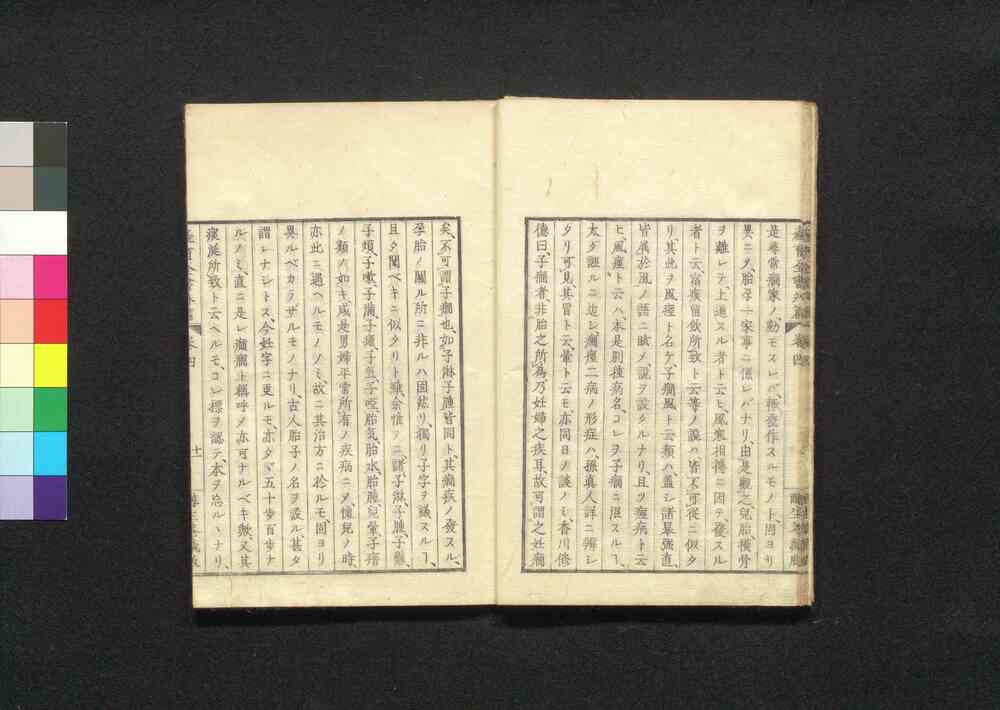 是尋常癇家ノ、動モスレバ輙發作スルモノト、固ヨリ
異ニメ、胎孕一家事ニ係レバナリ、由是觀之兒胎攪骨
ヲ離レテ、上逆スル者ト云ヒ、風寒相搏ニ因テ發スル
者ト云、宿疾留飲所致ト云等ノ説ハ皆不可從ニ似タ
リ、其此ヲ風痙ト名ケ、子癇風ト云類ハ、蓋シ諸暴強直、
皆屬於風ノ語ニ眩メ説ヲ設タルナリ、且ツ痙病ト云
ヒ、風痙ト云ハ、本是別種病名、コレヲ子癇ニ混スルヿ、
太ダ謳ルニ近シ、癇痙二病ノ形症ハ、孫真人詳ニ辨シ
タリ可見、其冒ト云、暈ト云モ亦同日ノ談ノミ香川修
德曰、子癇者、非胎之所為、乃妊婦之疾耳、故可謂之妊癇
矣、不可謂子癇也、如子淋子腫皆同ト、其癇疾ノ發スル、
孕胎ノ關ル所ニ非ルハ固然リ、獨リ子字ヲ議スルヿ、
且タ闕ベキニ似タリト雖、余惟ラニ諸子淋、子腫、子懸、
子煩、子嗽、子滿、子瘧、子氣、子啞、胎氣、胎水、胎腫、兒暈、子瘖
ノ類ノ如キ、咸是男婦平常所有ノ疾病ニメ、懷兒ノ時、
亦此ニ過ヘルモノノミ、故ニ其治方ニ於ルモ、固ヨリ
異ルベカラザルモノナリ、古人胎子ノ名ヲ設ル、甚タ
謂レナシトス、今妊字ニ更ルモ、亦タヾ五十歩百歩ナ
ルノミ、直ニ是レ癲癇ト稱呼メ亦可ナルベキ歟、又其
痰涎所致ト云ヘルモ、コレ標ヲ認テ、本ヲ忘ルヽナリ、
卷四
十一